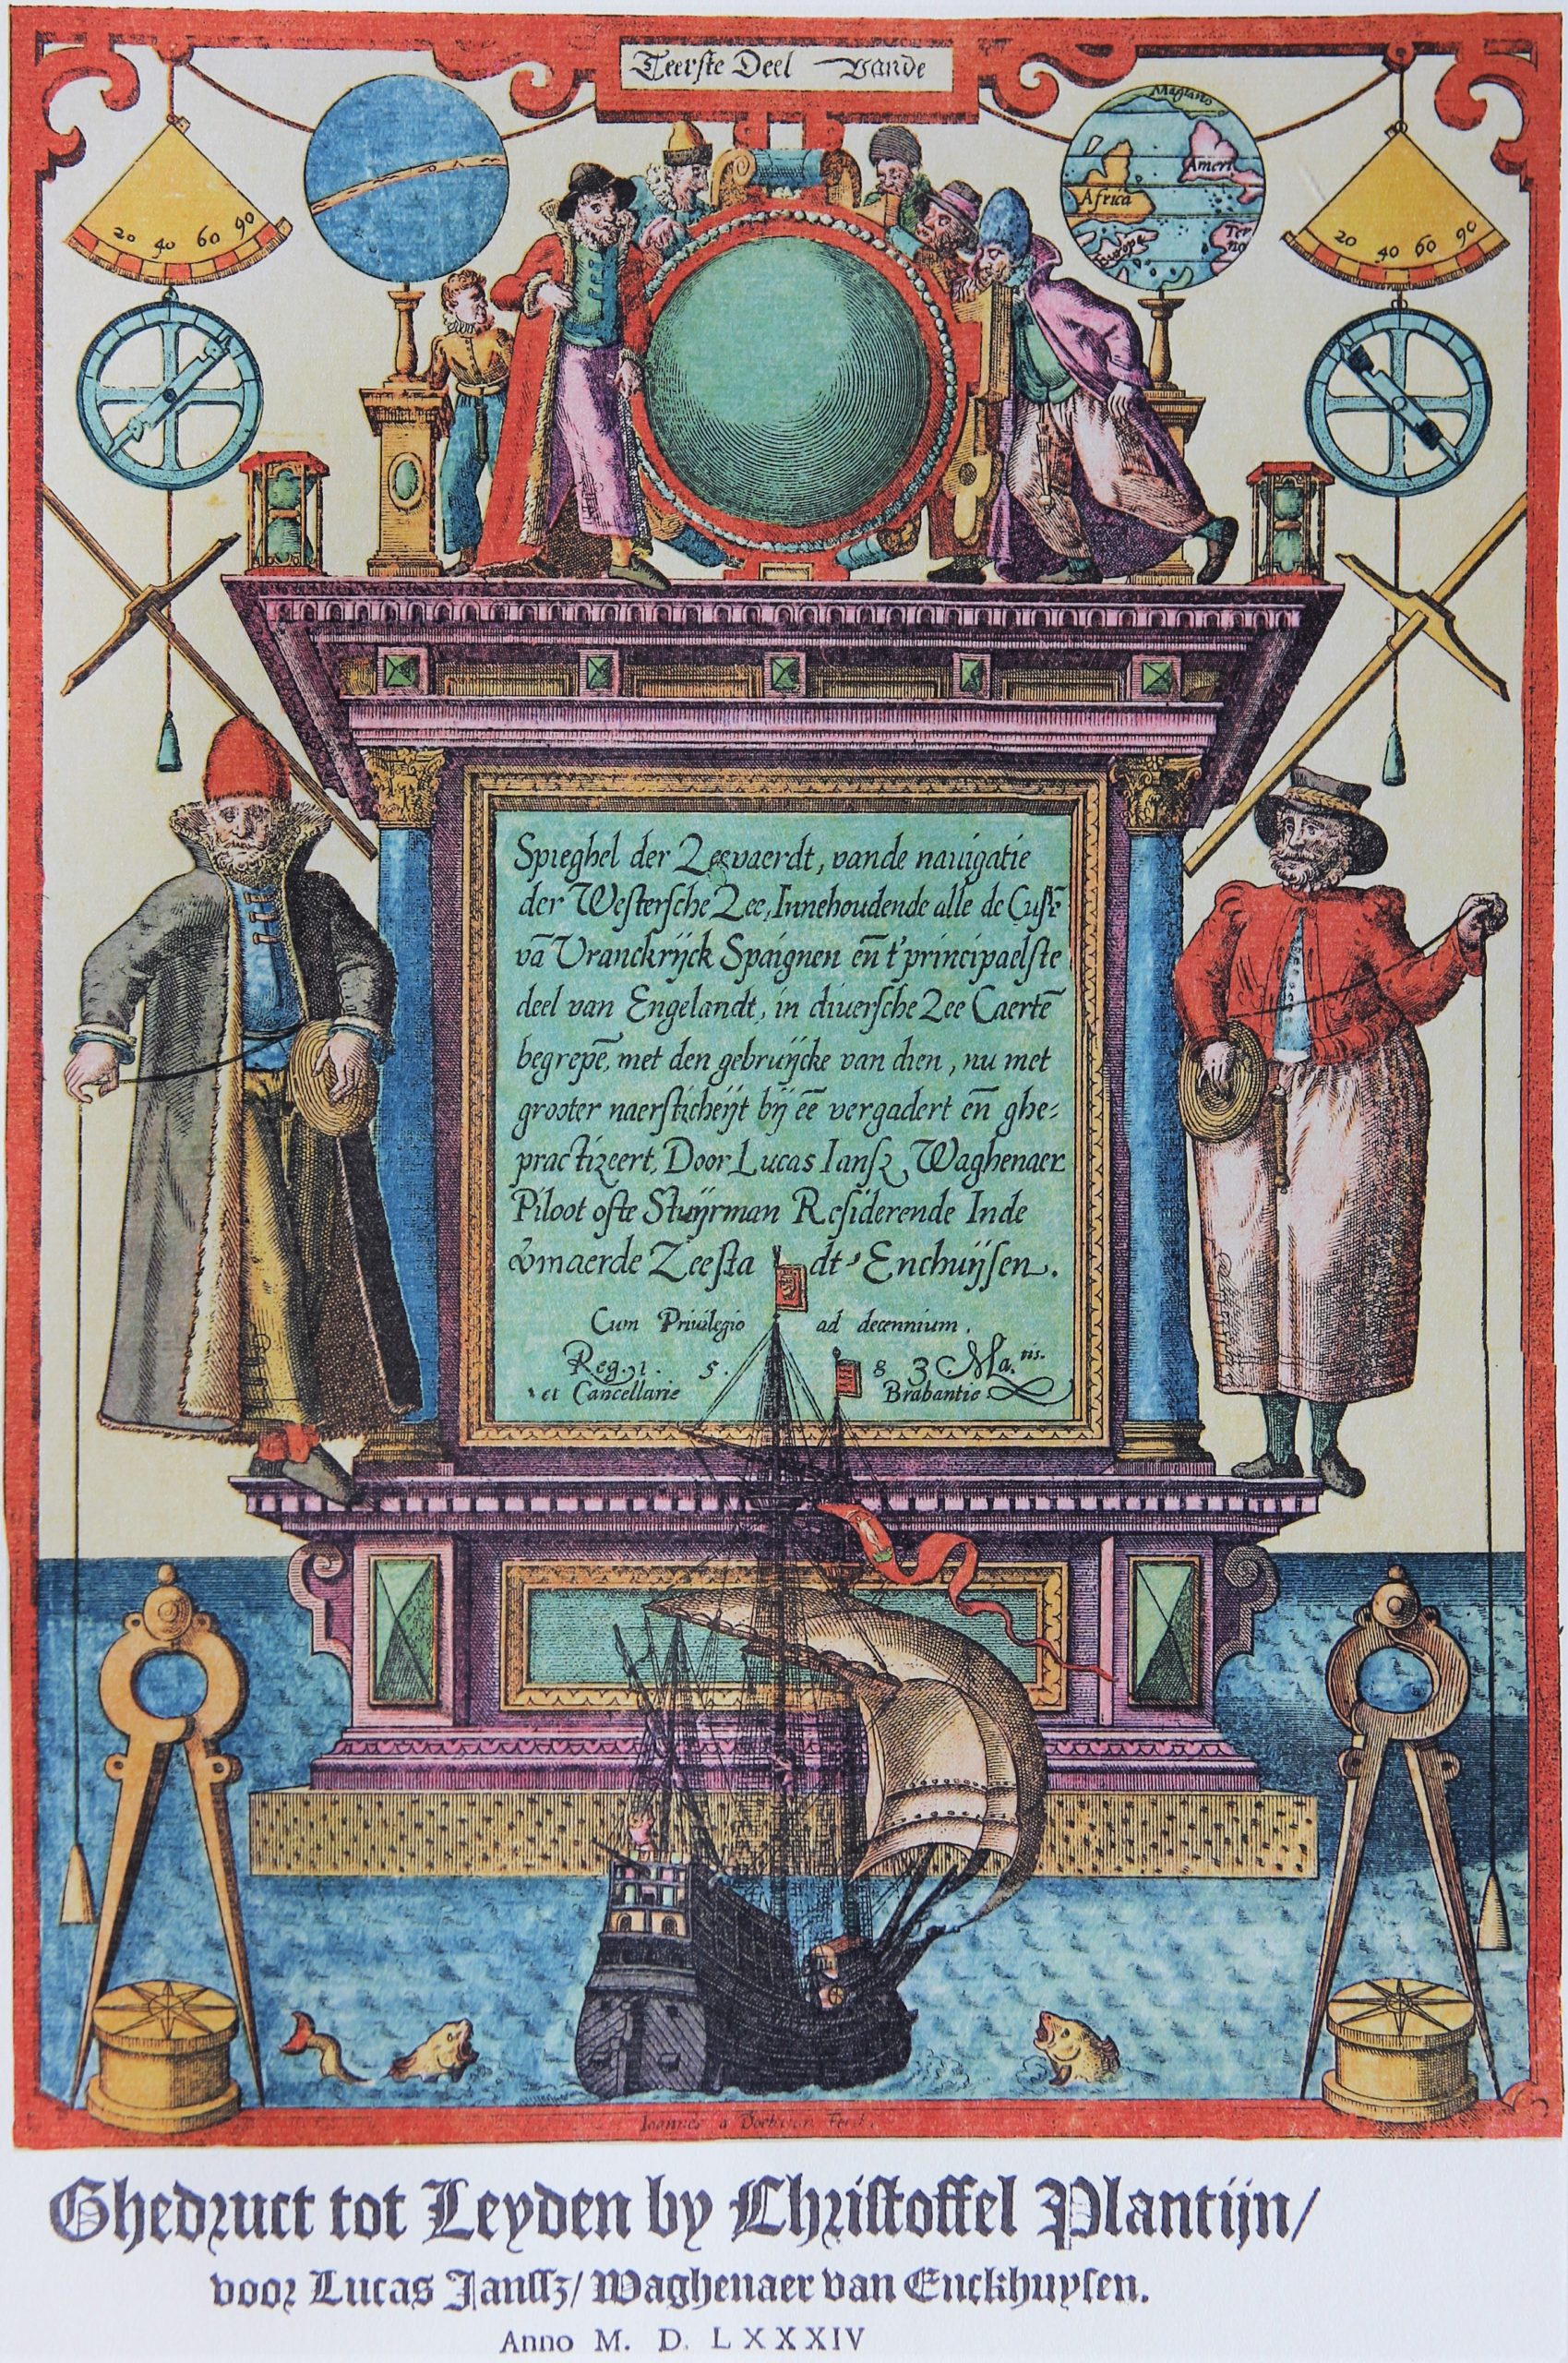 Teerste Deel vande
20 40 60 90
Magians
Africa
Ameri
Europa
Ter
no
20 40 60 90
Spieghel der Zeevaerdt, vande nauigatie
der Westersche Zee, Innehoudende alle de Custē
vā Vranckrijck Spaignen eñ t'principaelste
deel van Engelandt, in diuersche Zee Caertē
begrepē, met den gebruijcke van dien, nu met
grooter naersticheijt bij eē vergadert eñ ghe-
practizeert, Door Lucas Iansz Waghenaer
Piloot ofte Stuijrman Residerende Inde
vmaerde Zeesta dt Enchuijsen.
Cum Priuilegio ad decennium.
Reg. 1. 5. 8 3 Ma.tis.
et Cancellarie Brabantie
Ioannes a Doetecum Fecit.
Ghedruct tot Leyden by Christoffel Plantijn/
voor Lucas Janssz/ Waghenaer van Enckhuysen.
Anno M. D. LXXXIV